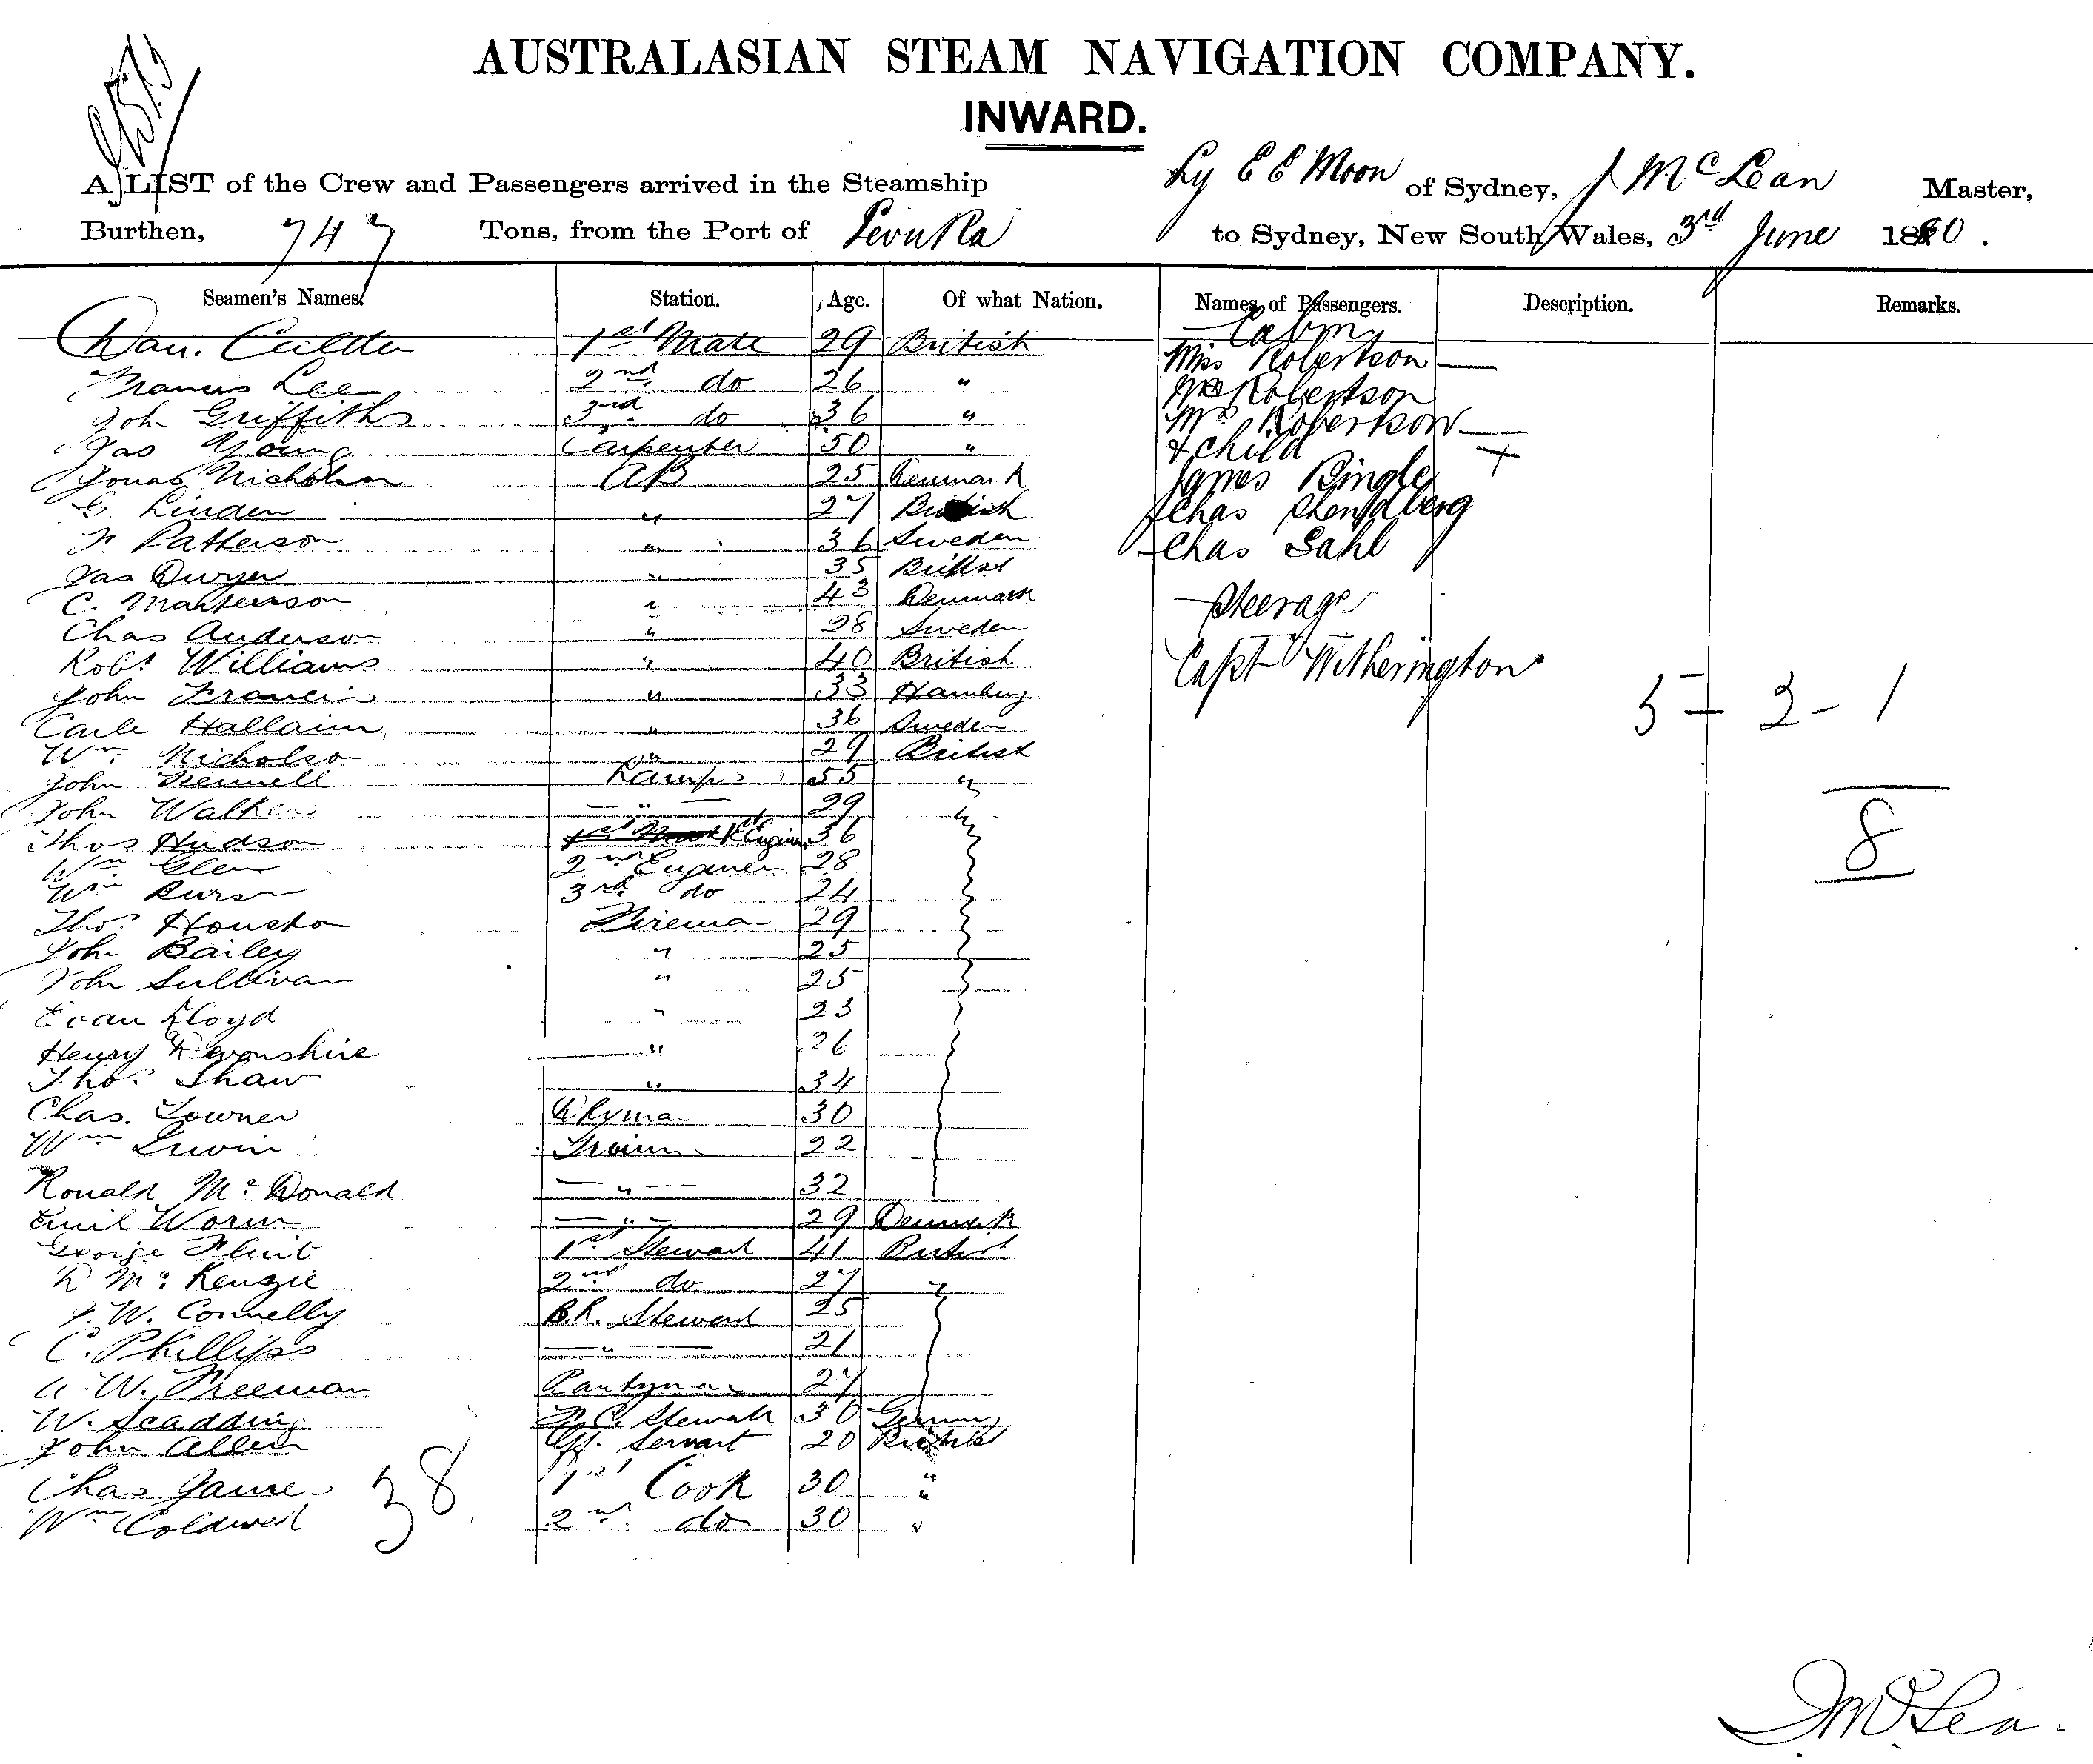 AUSTRALASIAN STEAM NAVIGATION COMPANY.
INWARD.
A LIST of the Crew and Passengers arrived in the Steamship Ly E E Moon of Sydney, J McLean Master,
Burthen, 747 Tons, from the Port of Levuka to Sydney, New South Wales, 3rd June 1880.
Seamen's Names. Station. Age. Of what Nation. Names of Passengers. Description. Remarks.
Dan. Calder 1st Mate 29 British
Francis Lee 2nd do 26 "
John Griffiths 3rd do 36 "
Jas Young Carpenter 50 "
Jonas Nicholson AB 25 Denmark
G. Linden " 27 British
Patterson " 36 Sweden
Jas Dwyer " 35 British
C. Martenson " 43 Denmark
Chas Anderson " 28 Sweden
Robt Williams " 40 British
John Francis " 33 Hamburg
Carle Hallaim " 36 Sweden
Wm Nicholson " 29 British
John Lamps 55 "
John Walker " 29 "
Thos Hudson 1st Engineer 36
Wm Glen 2nd Engineer 28
Wm 3rd do 24
Thos Houston Fireman 29
John Bailey " 25
John Sullivan " 25
Evan Lloyd " 23
Henry Devonshire " 26
Thos Shaw " 34
Chas. Towner 30
Wm Irwin Trimr 22
Ronald McDonald " 32
Emil Worm " 29 Denmark
George Flint 1st Steward 41 British
D McKenzie 2nd do 27 "
J. W. Connelly B.R. Steward 25
C. Phillips " 21
W. Freeman Pantryman 27
W. Scadding Steward 30 Germany
John Allen Servant 20 British
Chas 1st Cook 30 "
Wm Coldwell 2nd do 30 "
38
Cabin
Miss Robertson
Mr Robertson
Mrs Robertson
& child
James Bingle
Chas
Chas Sahl
Steerage
Capt Witherington
5 2 - 1
8
J McLean